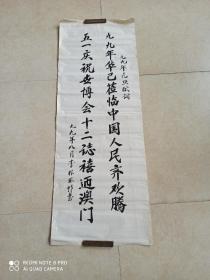 九九年元旦献词
九九年华已莅临中国人民齐欢腾
五一庆祝世博会十二誌禧迴澳门
九九年八月李
REDMI NOTE 8 PRO
AI QUAD CAMERA